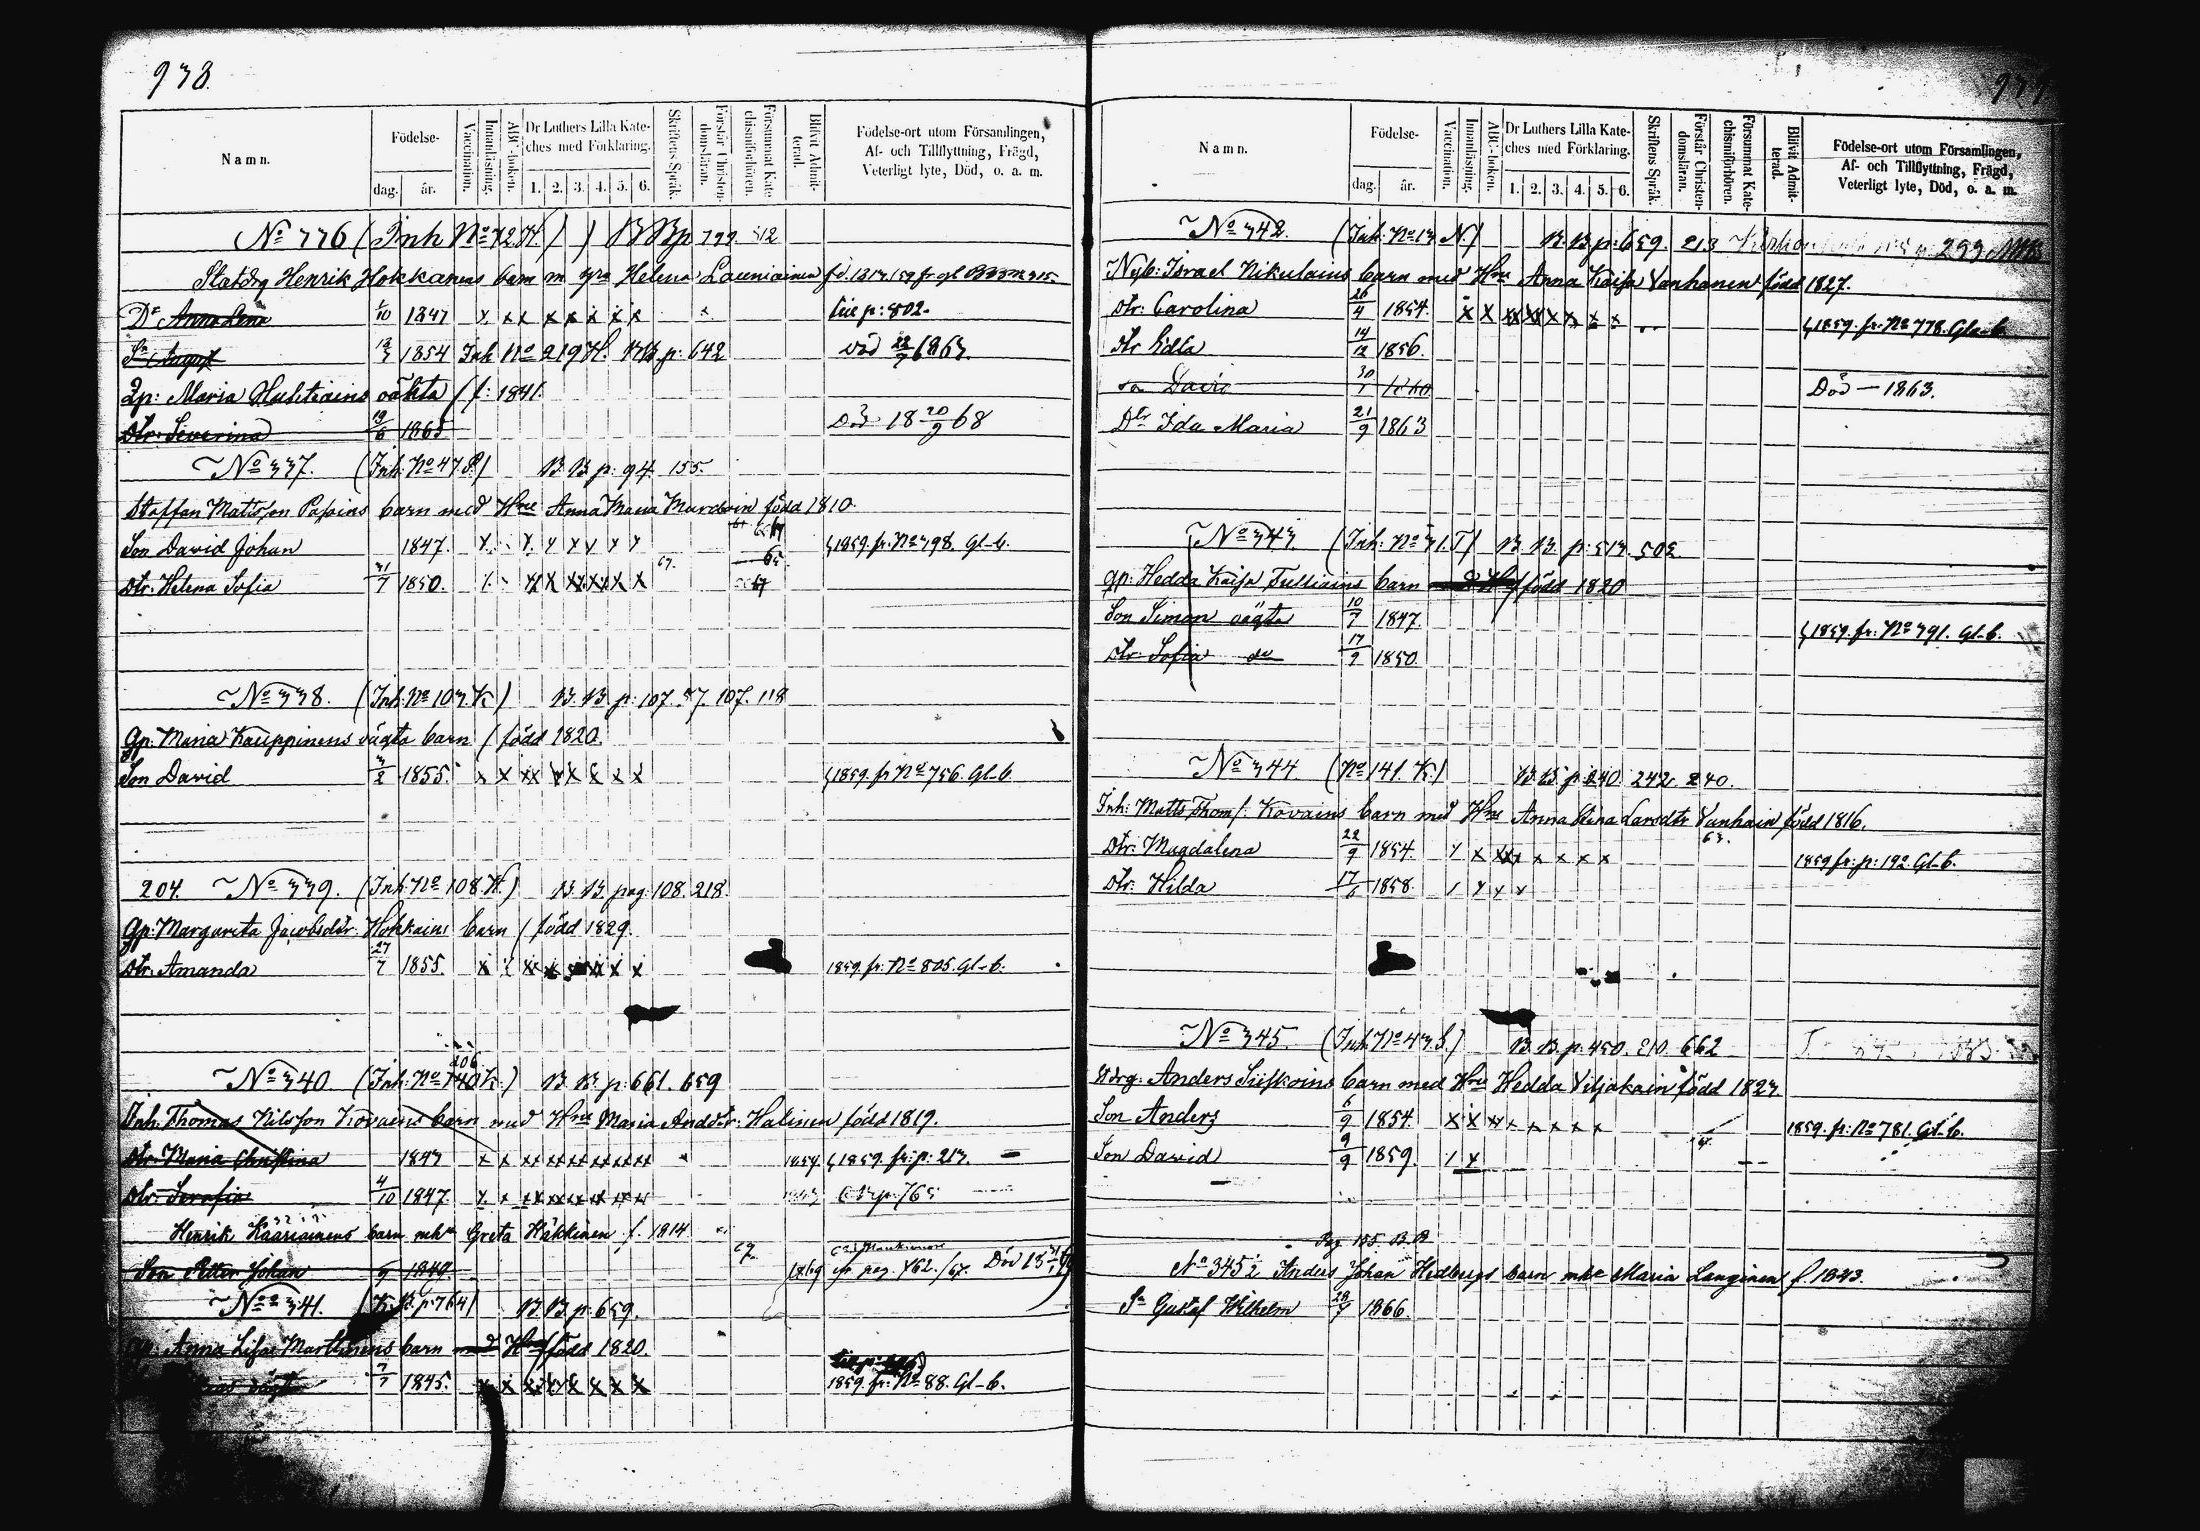 938.
Namn.
Födelse-
dag.
år.
Vaccination.
Innanläsning.
ABC-boken.
Dr Luthers Lilla Kate-
ches med Förklaring.
1. 2. 3. 4. 5. 6.
Skriftens Språk.
Förstår Christen-
domsläran.
Försummat Kate-
chismiförhören.
Blifvit Admit-
terad.
Födelse-ort utom Församlingen,
Af- och Tillflyttning, Frägd,
Veterligt lyte, Död, o. a. m.
No 336 (Inh No 72 H.) B B p 799. 312
Statdrg Henrik Hokkanens barn m. Helena Launiainen
Dr Anna Lena 1/10 1847 x xx x x x x x
Sn August 1854 Inh No 219 H. p. 642
Qp: Maria Hultiains oäkta (f: 1841.
Dtr: Severina 19/6 1865 Död 18 20/9 68
No 337. (Inh: No 47. P.) B. B. p: 94. 155.
Staffan Matsson barn med Hru Anna Maria född 1810.
Son David Johan 1847. 1859. fr. No 798. Gl-b.
Dtr. Helena Sofia 31/7 1850. 67.
No 338. (Inh: No 103. K.) B. B. p: 107. 77. 107. 118
Qp: Maria Kauppinens oägta barn (född 1820.
Son David 3/2 1855. x x xx x x x x x 1859. fr No 756. Gl-b.
204. No 339. (Inh: No 108. K.) B. B. pag: 108. 218.
Qp: Margareta Jacobsdtr. Hokkains barn (född 1829.
Dtr. Amanda 27/7 1855. 1859. fr: No 805. Gl-b.
206
No 340 (Inh: No 140 K.) B. B. p: 661. 659
Inh. Thomas Nilsson Kovains barn med Hru Maria Andsdtr: Halinen född 1819.
Dtr. Maria Christina 1843 1859. fr: p: 213.
Dtr. Serafia 4/10 1847.
Henrik Kääriäinens barn mhu Greta Häkkinen f. 1814
Son Petter Johan 1849 1869
No 341. (K. B. p: 764) B. B. p: 659.
Qp. Anna Lisa barn född 1820.
oägta 7/7 1845. 1859. fr: No 88. Gl-b.
Namn.
Födelse-
dag.
år.
Vaccination.
Innanläsning.
ABC-boken.
Dr Luthers Lilla Kate-
ches med Förklaring.
1. 2. 3. 4. 5. 6.
Skriftens Språk.
Förstår Christen-
domsläran.
Försummat Kate-
chismiförhören.
Blifvit Admit-
terad.
Födelse-ort utom Församlingen,
Af- och Tillflyttning, Frägd,
Veterligt lyte, Död, o. a. m.
No 342. (Inh: No 13 N.) B. B. p: 659. 213
Nyb: Israel Nikulains barn med Hru Anna Kaisa Vanhanen född 1827.
Dtr. Carolina 26/4 1854. 1859. fr. No 778. Gl-b.
Dtr Edla 14/12 1856.
Son David 30/1 1860 Död — 1863.
Dtr Ida Maria 21/9 1863
No 343. (Inh: No 31. T) B. B. p: 513. 502
qp: Hedda Kaisa Tulliains barn född 1820
Son Simon oägta 10/7 1847. 1859. fr: No 791. Gl-b.
Dtr: Sofia do 17/9 1850.
No 344 (No 141. K.) B. B. p: 240. 242. 240.
Inh: Matts Thoms. Kovains barn med Hru Anna Stina Larsdtr Vanhain född 1816.
Dtr: Magdalena 22/9 1854. 63. 1859 fr: p: 192. Gl-b.
Dtr: Hilda 17/6 1858.
No 345. (Inh No 43. S.) B. B. p: 450. 210. 662
Stdrg: Anders Sirkoins barn med Hru Hedda Viljakain född 1823
Son Anders 6/9 1854. 1859. fr: No 781. Gl-b.
Son David 9/9 1859.
Pag 155 B. B
No 345½ Anders Johan Hedbergs barn mhu Maria Langinen f 1843.
Sn Gustaf Wilhelm 28/7 1866